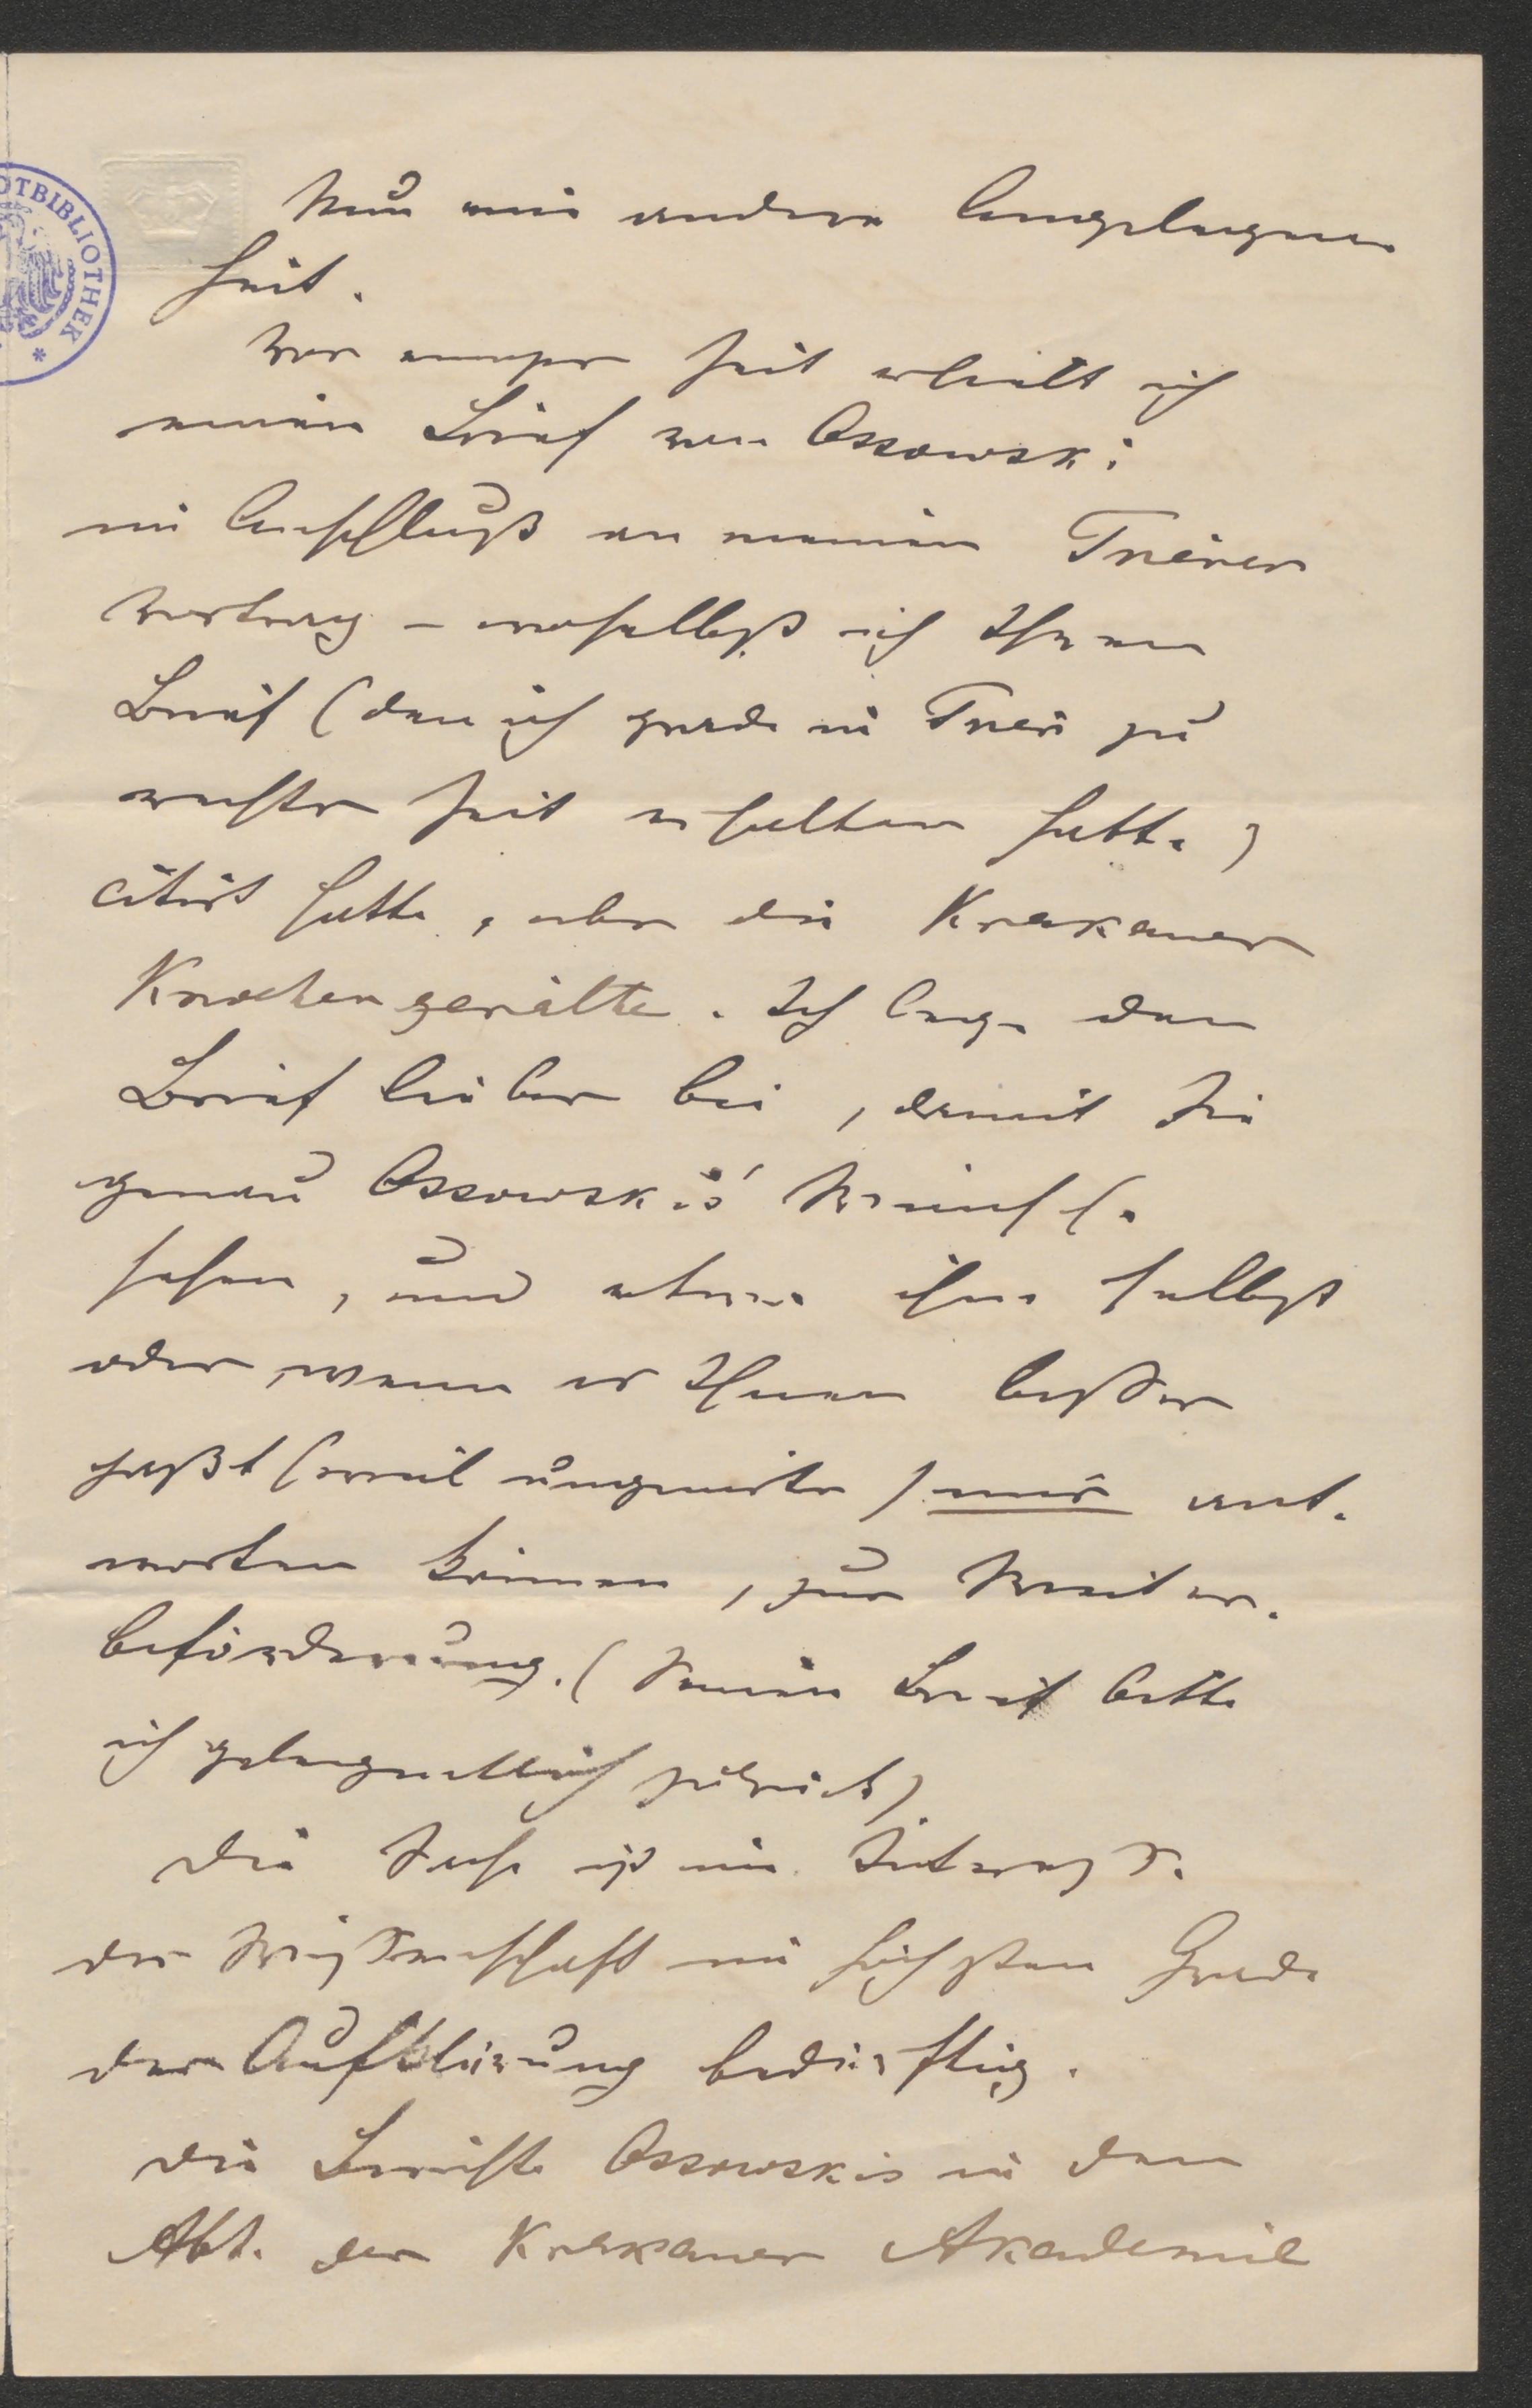 Nun eine andere Angelegen
heit.
Vor einiger Zeit erhielt ich
einen Brief von Ossowski
im Anschluß an meinen Trierer
Vortrag – woselbst ich Ihren
Brief (den ich grade in Trier zu
rechter Zeit erhalten hatte)
citirt hatte, über die Krakauer
Knochengeräthe. Ich lege den
Brief lieber bei, damit Sie
genau Ossowskis' Wünsche
sehen, und etwa ihm selbst
oder, wenn es Ihnen besser
paßt (weil ungenirter) mir ant-
worten können, zur Weiter-
beförderung. (Seinen Brief bitte
ich gelegentlich zurück)
Die Sache ist im Interesse
der Wissenschaft im höchsten Grade
der Aufklärung bedürftig.
Die Berichte Ossowskis in den
Abh. der Krakauer Akademie
OTBIBLIOTHEK *